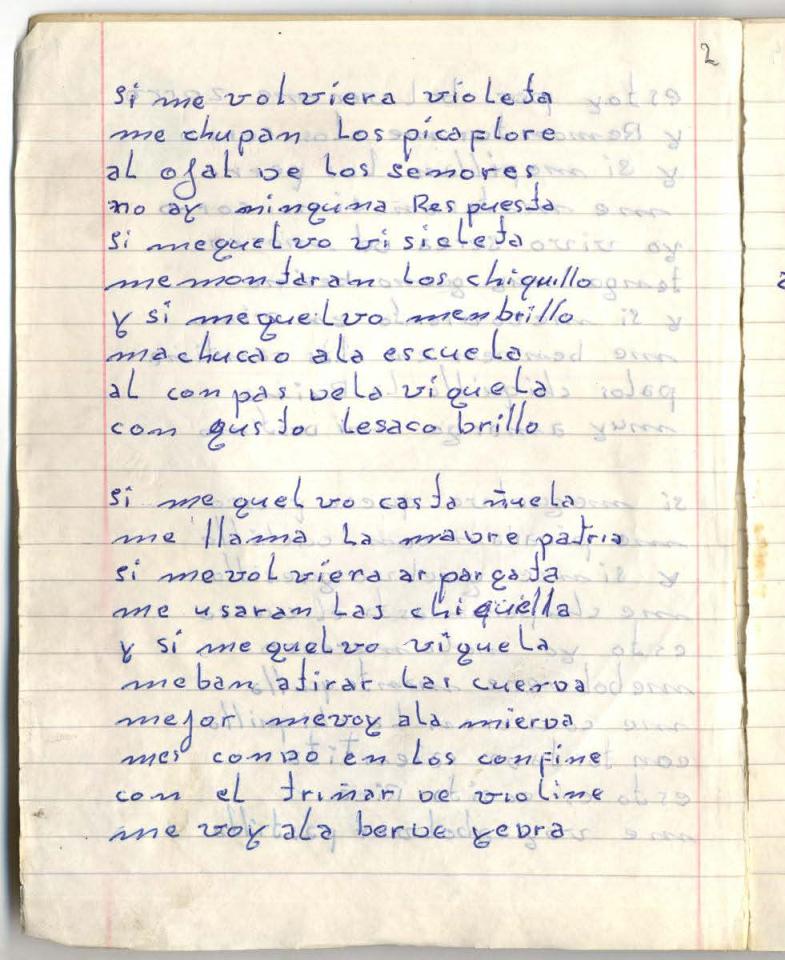 2
si me volviera violeta
me chupan los picaflore
al ojal de los señores
no ay ninguna Respuesta
si mequelvo visicleta
memontaran los chiquillo
y si mequelvo menbrillo
machucao ala escuela
al conpas dela viguela
con gusto lesaco brillo

si me quelvo castañuela
me llama la madre patria
si mevolviera arpargata
me usaran las chiquella
y si me quelvo viguela
meban atirar las cuerda
mejor mevoy ala mierda
mes condo en los confine
con el trinar de violine
me voy ala berde yedra